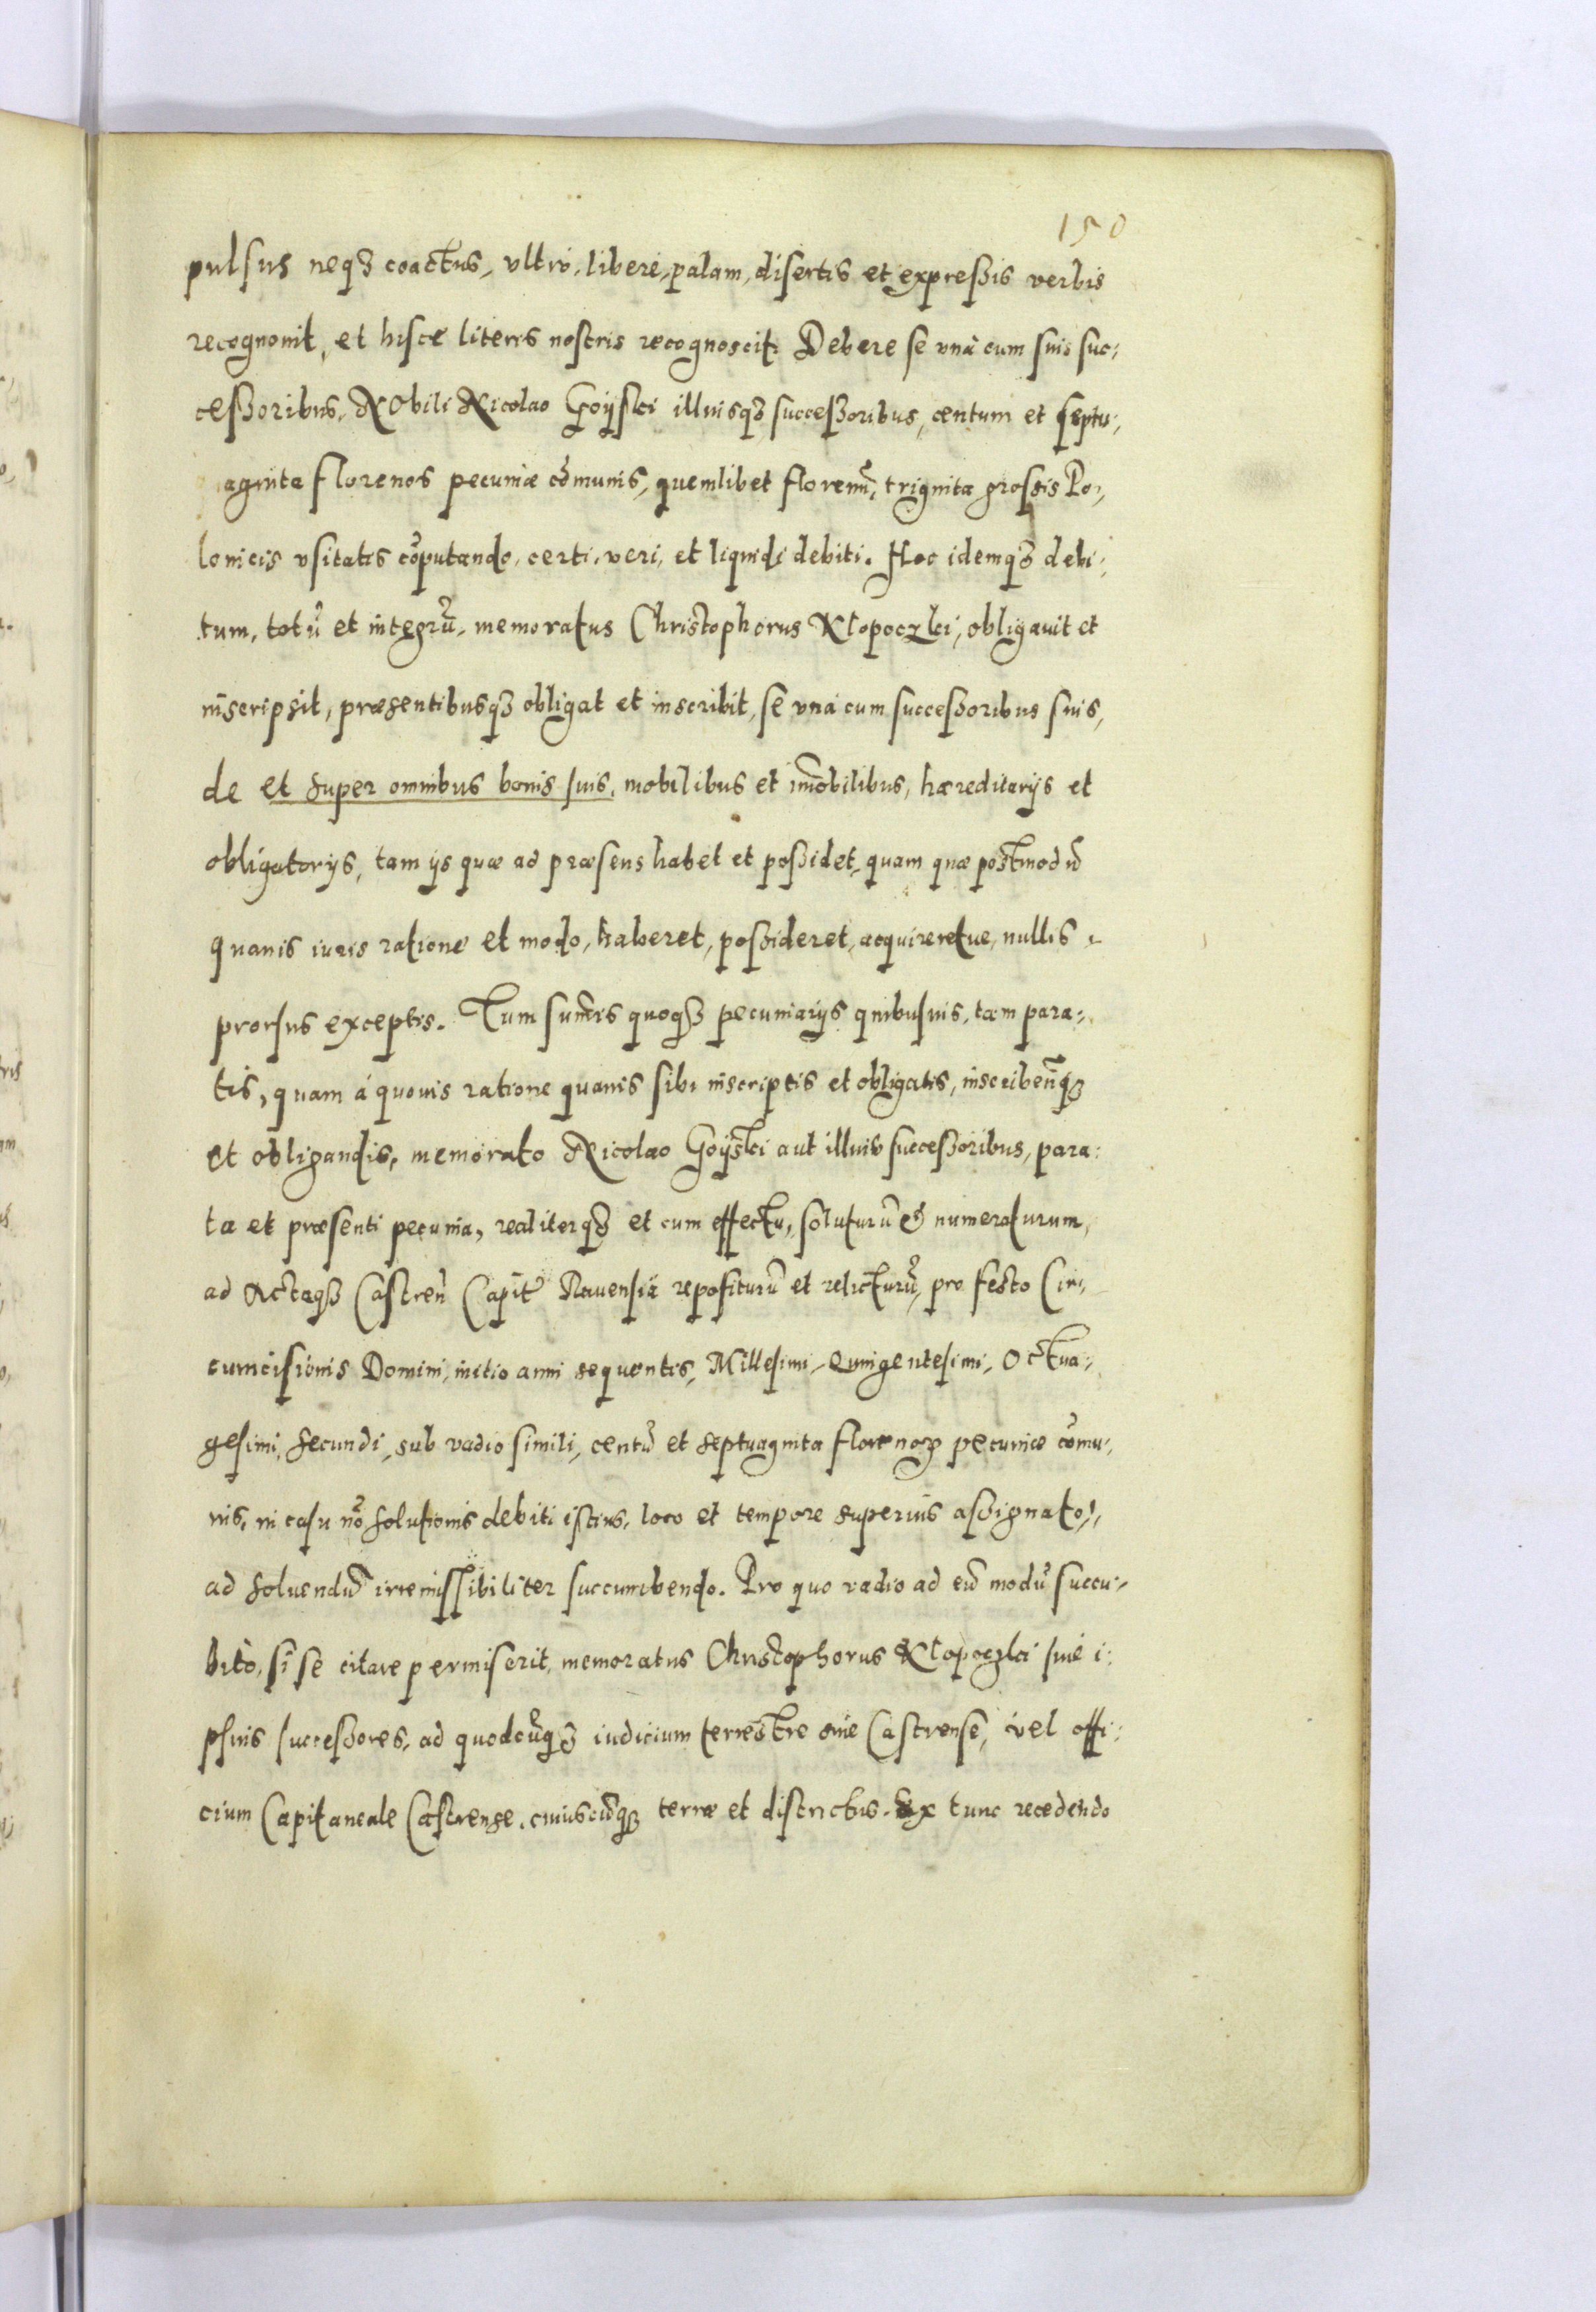 150
pulsus neqȝ coactus, vltrò, liberè, palam, disertis et expreßis verbis
recognouit, et hisce literis nostris recognoscit. Debere se vnà cum suis suc:
ceßoribus, Nobili Nicolao Goÿski illiusqȝ succeßoribus, centum et septu:
aginta florenos pecuniæ cõmunis, quemlibet florenũ, triginta grossis Po:
lonicis vsitatis cõputando, certi, veri, et liquidi debiti. Hoc idemqȝ debi:
tum, totũ et integrũ, memoratus Christophorus Klopoczki, obligauit et
inscripsit, præsentibusqȝ obligat et inscribit, se vnà cum succeßoribus suis,
de et super omnibus bonis suis, mobilibus et im̃obilibus, hæreditarijs et
obligatorijs, tam ijs quæ ad præsens habet et poßidet, quam quæ postmodũ
quauis iuris ratione et modo, haberet, poßideret, acquireretue, nullis
prorsus exceptis. Tum sum̃is quoqȝ pecuniarijs quibusuis, tam para:
tis, quam à quouis ratione quauis sibi inscriptis et obligatis, inscribend̃qȝ
et obligandis, memorato Nicolao Goÿski aut illius succeßoribus, para:
ta et præsenti pecunia, realiterqȝ et cum effectu, soluturũ & numeraturum,
ad Actaqȝ Castreñ Capit̃ Rauensia repositurũ et relicturũ, pro festo Cir:
cumcisionis Domini, initio anni sequentis, Millesimi, Quingentesimi, Octua:
gesimi, secundi, sub vadio simili, centũ et septuaginta florenoꝝ pecuniæ cõmu:
nis, in casu nõ solutionis debiti istius, loco et tempore superius aßignato,
ad soluendũ irremissibiliter succumbendo. Pro quo vadio ad eũ modũ succu:
bito, si se citare permiserit, memoratus Christophorus Klopoczki siue i:
psius succeßores, ad quodcũqȝ iudicium terrestre siue Castrense, vel offi:
cium Capitaneale Castrense, cuiuscũqȝ terræ et districtus. Ex tunc recedendo